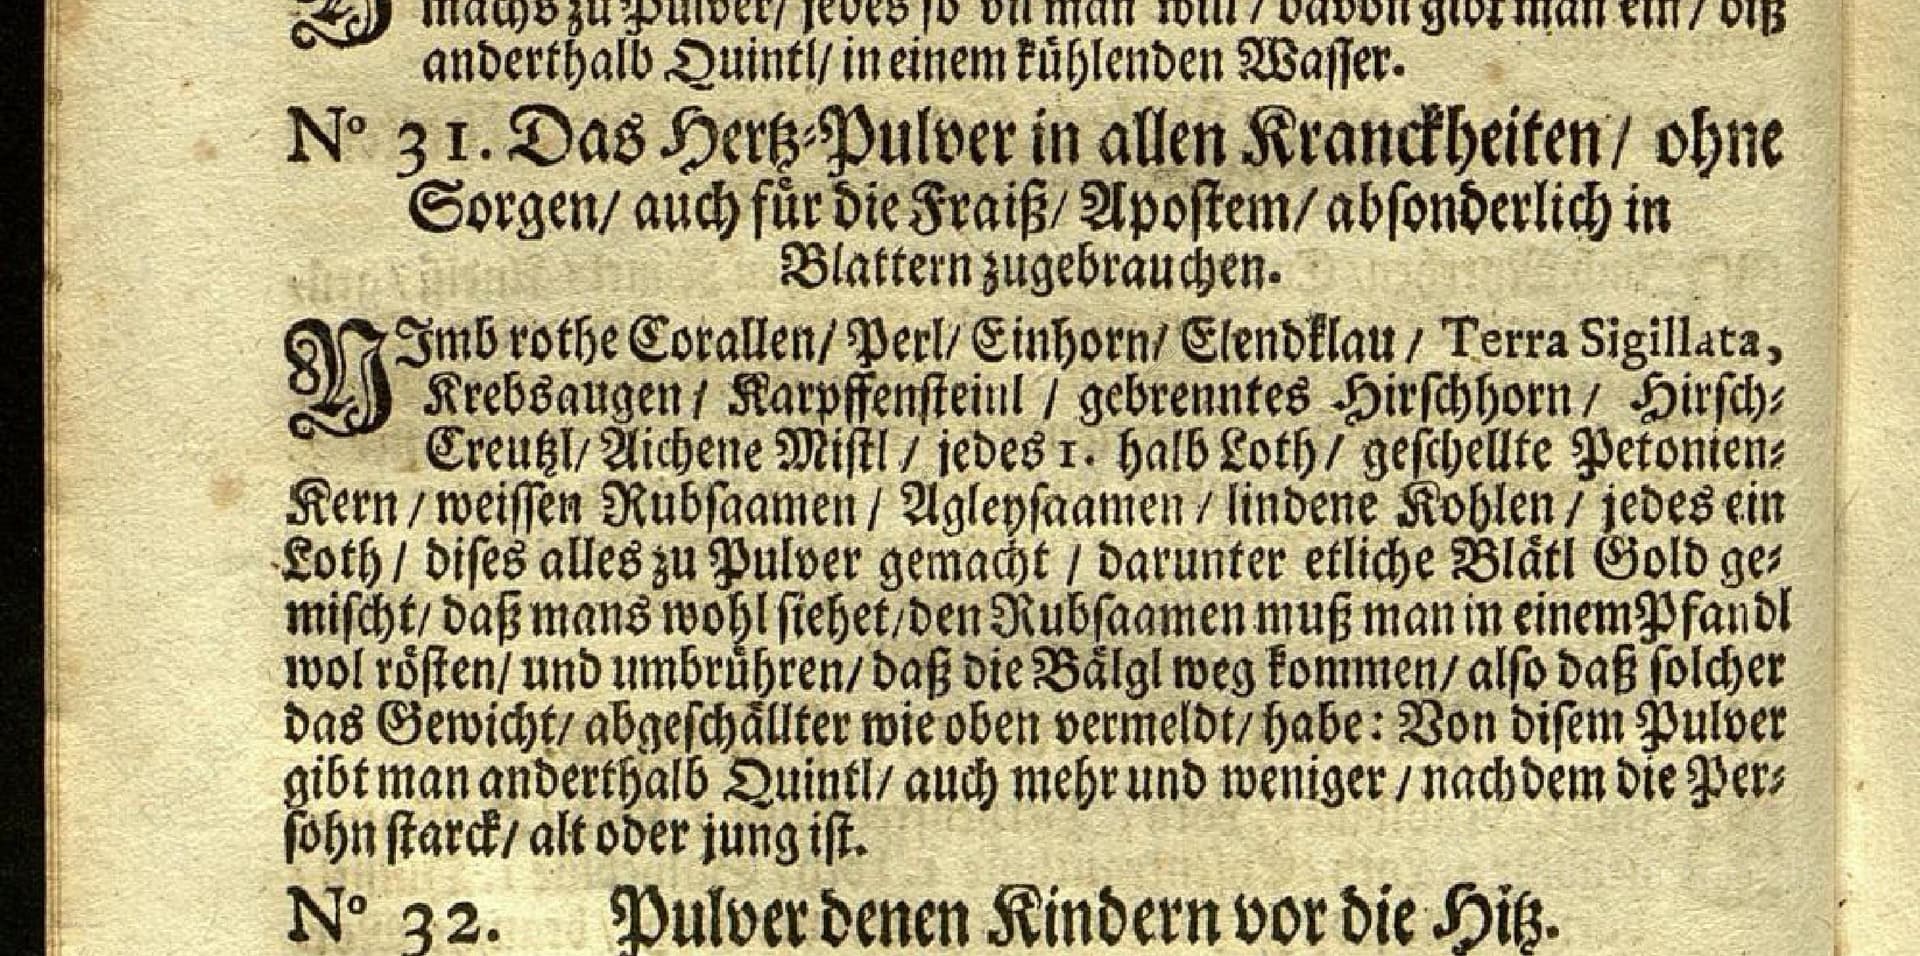 machs zu Pulver/ jedes so vil man will / davon gibt man ein / biß
anderthalb Quintl/ in einem kühlenden Wasser.
N° 31. Das Hertz-Pulver in allen Kranckheiten / ohne
Sorgen/ auch für die Fraiß/ Apostem/ absonderlich in
Blattern zugebrauchen.
NImb rothe Corallen/ Perl/ Einhorn/ Elendklau / Terra Sigillata,
Krebsaugen / Karpffensteinl / gebrenntes Hirschhorn / Hirsch-
Creutzl/ Aichene Mistl / jedes 1. halb Loth / geschellte Petonien-
Kern / weissen Rubsaamen / Agleysaamen / lindene Kohlen / jedes ein
Loth / dises alles zu Pulver gemacht / darunter etliche Blätl Gold ge-
mischt/ daß mans wohl siehet/ den Rubsaamen muß man in einem Pfandl
wol rösten/ und umbrühren/ daß die Bälgl weg kommen/ also daß solcher
das Gewicht/ abgeschällter wie oben vermeldt/ habe: Von disem Pulver
gibt man anderthalb Quintl/ auch mehr und weniger / nach dem die Per-
sohn starck/ alt oder jung ist.
N° 32. Pulver denen Kindern vor die Hitz.